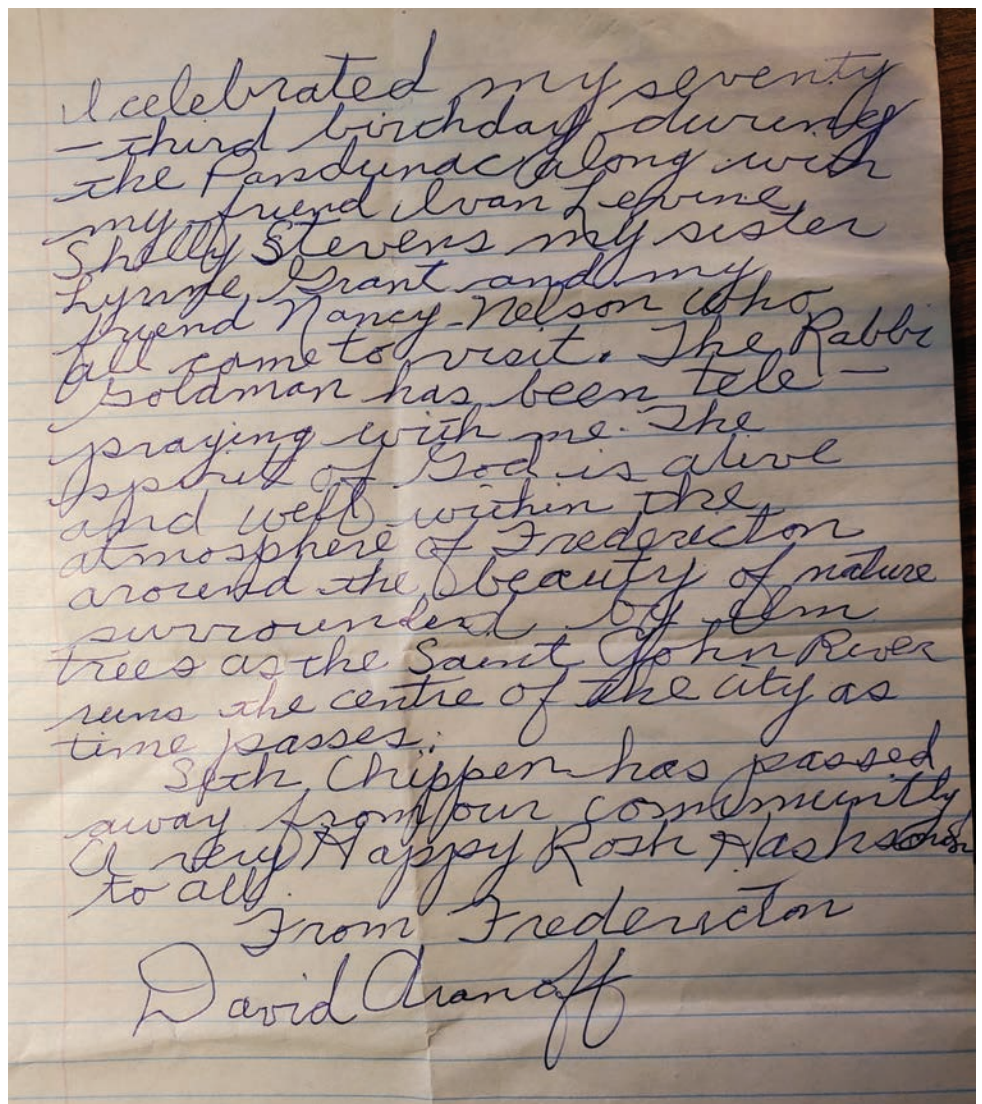 I celebrated my seventy
- third birthday during
the Pandunac along with
my friend Ivan Levine,
Shelly Stevens my sister
Lynne Grant and my
friend Nancy-Nelson who
all came to visit. The Rabbi
Goldman has been tele -
praying with me. The
Spirit of God is alive
and well within the
atmosphere of Fredericton
around the beauty of nature
surrounded by elm
trees as the Saint John River
runs the centre of the city as
time passes.
Seth Chippen has passed
away from our community
A very Happy Rosh Hashanah
to all.
From Fredericton
David Aranoff